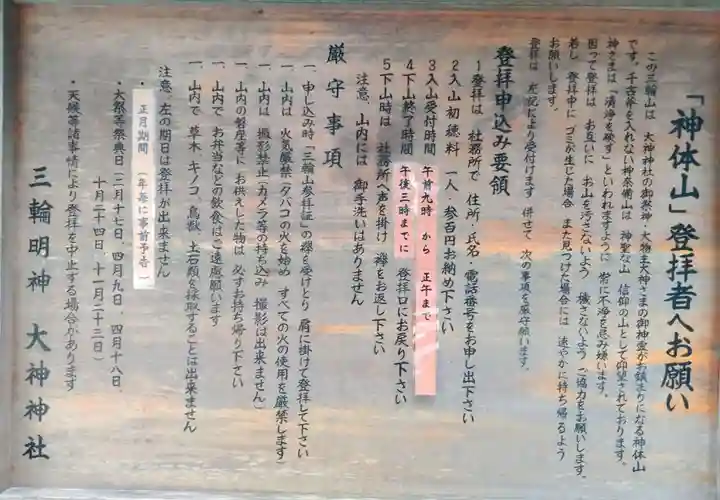 「神体山」登拝者へお願い
この三輪山は 大神神社の御祭神・大物主大神さまの御神霊がお鎮まりになる神体山
です。千古斧を入れない神奈備山は 神聖な山 信仰の山として仰望されております。
神さまは「清浄を愛す」といわれますように 常に不浄を忌み嫌います。
因って登拝は お互いに お山を汚さないよう 穢さないよう ご協力をお願いします。
若し 登拝中に ゴミが生じた場合 また見つけた場合には 速やかに持ち帰るよう
お願いします。
登拝は 左記により受付けます 併せて 次の事項を厳守願います。
登拝申込み要領
1 登拝は 社務所で 住所・氏名・電話番号をお申し出下さい
2 入山初穂料 一人・参百円お納め下さい
3 入山受付時間 午前九時 から 正午まで
4 下山終了時間 午後三時までに 登拝口にお戻り下さい
5 下山時は 社務所へ声を掛け 襷をお返し下さい
注意、山内には 御手洗いはありません
厳守事項
一、申し込み時「三輪山参拝証」の襷を受けとり 肩に掛けて登拝して下さい
一、山内は 火気厳禁(タバコの火を始め すべての火の使用を厳禁します)
一、山内は 撮影禁止(カメラ等の持ち込み 撮影は出来ません)
一、山内の磐座等に お供えした物は 必ずお持ち帰り下さい
一、山内で お弁当などの飲食はご遠慮願います
一、山内で 草木、キノコ、鳥獣、土石類を採取することは出来ません
注意 左の期日は登拝が出来ません
・正月期間 (年毎に事前予告)
・大祭等祭典日(二月十七日、四月九日、四月十八日、
十月二十四日、十一月二十三日)
・天候等諸事情により登拝を中止する場合があります
三輪明神 大神神社